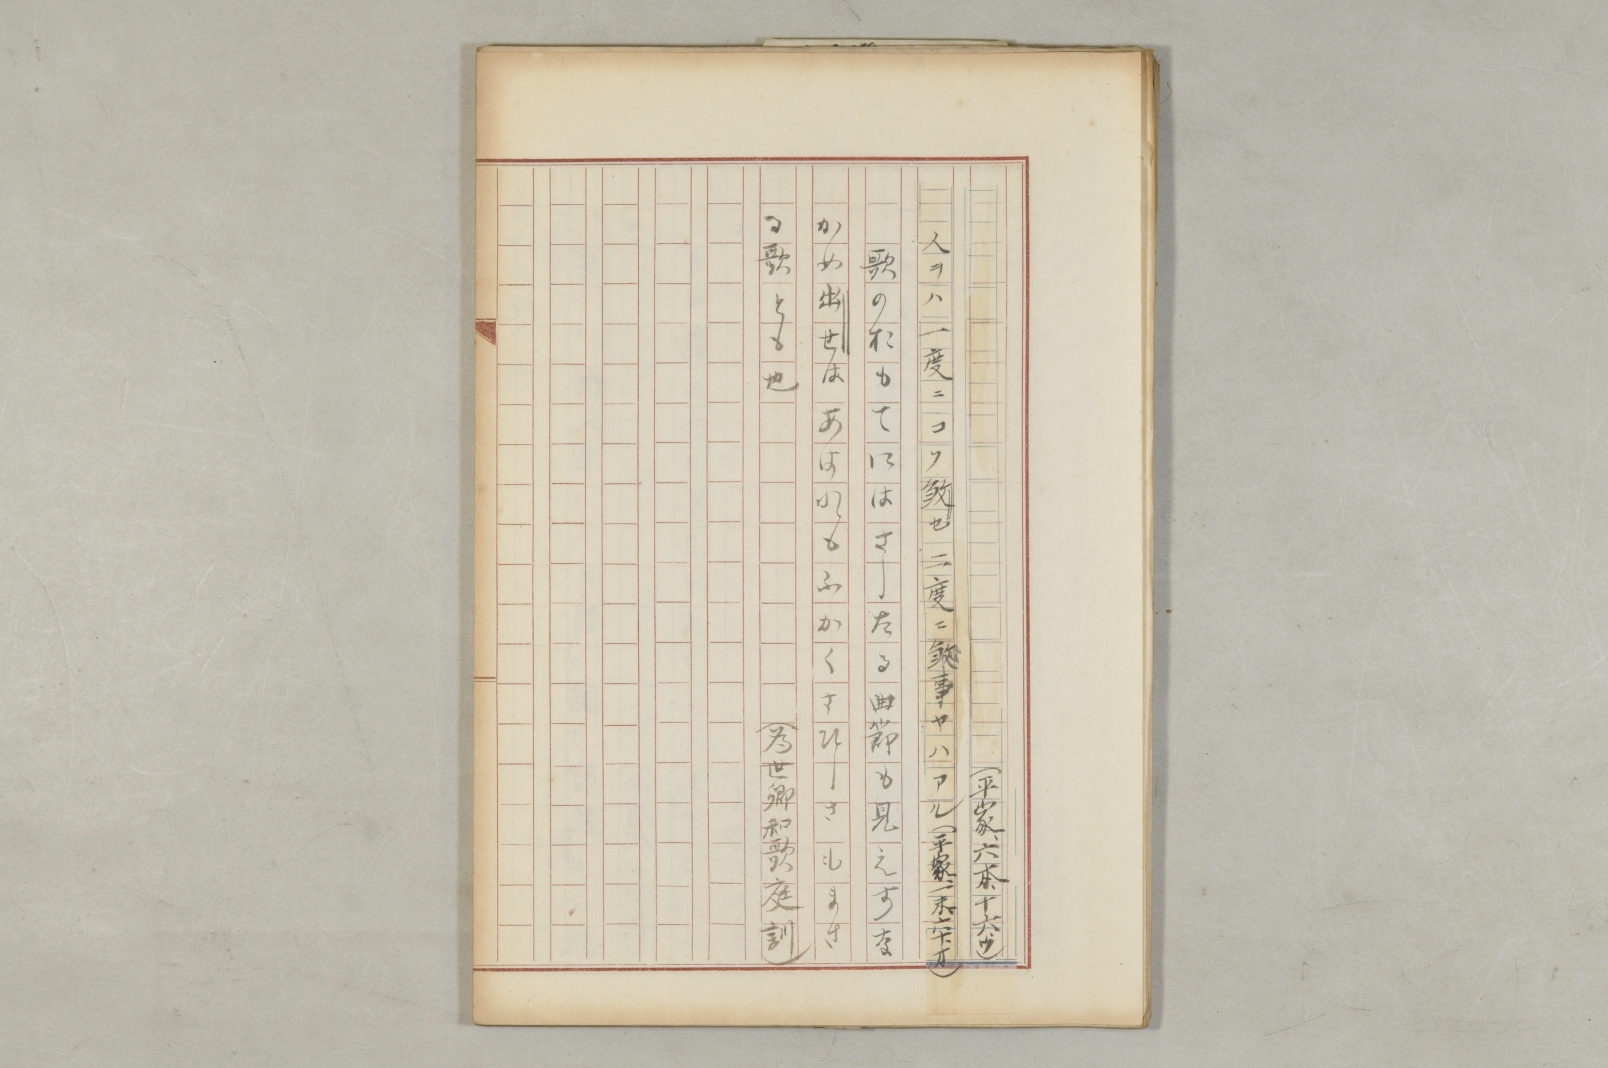 (平家、六本十六ウ)
人ヲハ一度ニコソ殺セ二度ニ殺事ヤハアル(平家、一末六十オ)
歌のおもてにはさしたる曲節も見えすな
かめ出せはあはれもふかくすかしさもまさ
る歌とも也(為世卿和歌庭訓)